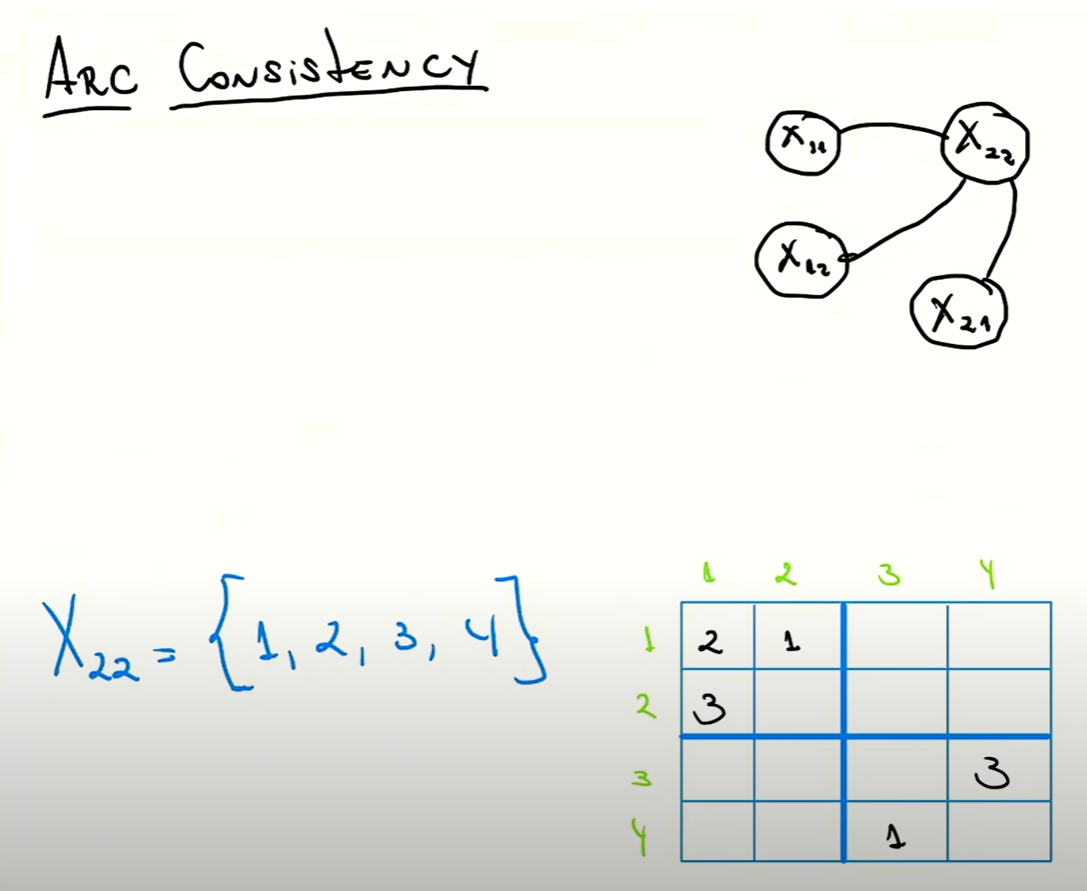 ARC CONSISTENCY
X₁₁ X₂₂
X₁₂
X₂₁
X₂₂ = {1, 2, 3, 4}
1 2 3 4
1 2 1
2 3
3 3
4 1